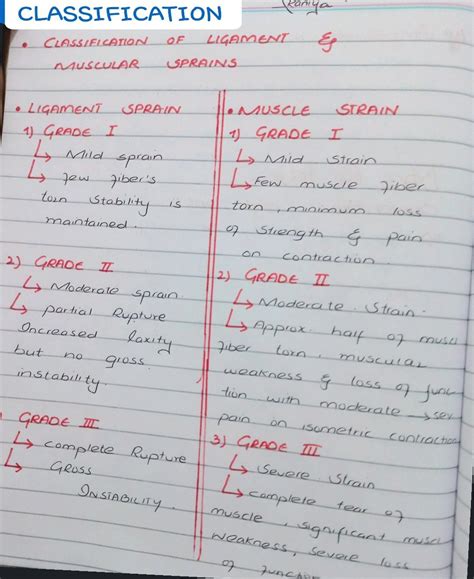 CLASSIFICATION
• CLASSIFICATION OF LIGAMENT &
MUSCULAR SPRAINS
• LIGAMENT SPRAIN
1) GRADE I
↳ Mild sprain
↳ few fiber's
torn stability is
maintained.
2) GRADE II
↳ Moderate sprain
↳ partial Rupture
Increased laxity
but no gross
instability.
GRADE III
↳ complete Rupture
↳ Gross
INSTABILITY.
• MUSCLE STRAIN
1) GRADE I
↳ Mild strain
↳ Few muscle fiber
torn, minimum loss
of strength & pain
on contraction.
2) GRADE II
↳ Moderate strain.
↳ Approx. half of muscl
fiber torn, muscular
weakness & loss of func
tion with moderate → sev
pain on isometric contraction
3) GRADE III
↳ Severe strain
↳ complete tear of
muscle, significant muscl
weakness, severe loss
of function